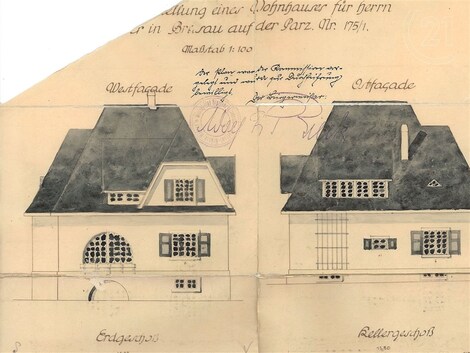 ellung eines Wohnhauses für Herrn
er in Brixau auf der Parz. Nr. 175/1.
Maßstab 1:100
Der Plan war der Kommission vor-
gelegt und wird zur Durchführung
bewilligt.
Der Bürgermeister:
Westfaçade
Ostfaçade
Erdgeschoß
Kellergeschoß